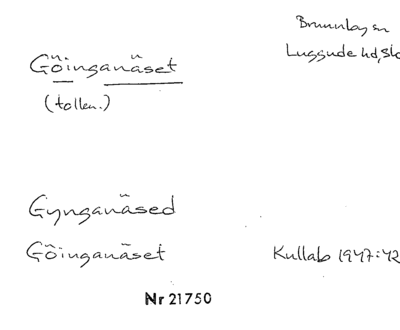 Brunnby sn
Göinganäset
Luggude hd, Sk
(tollen.)
Gynganäsed
Göinganäset
Kullab 1947:42
Nr 21750